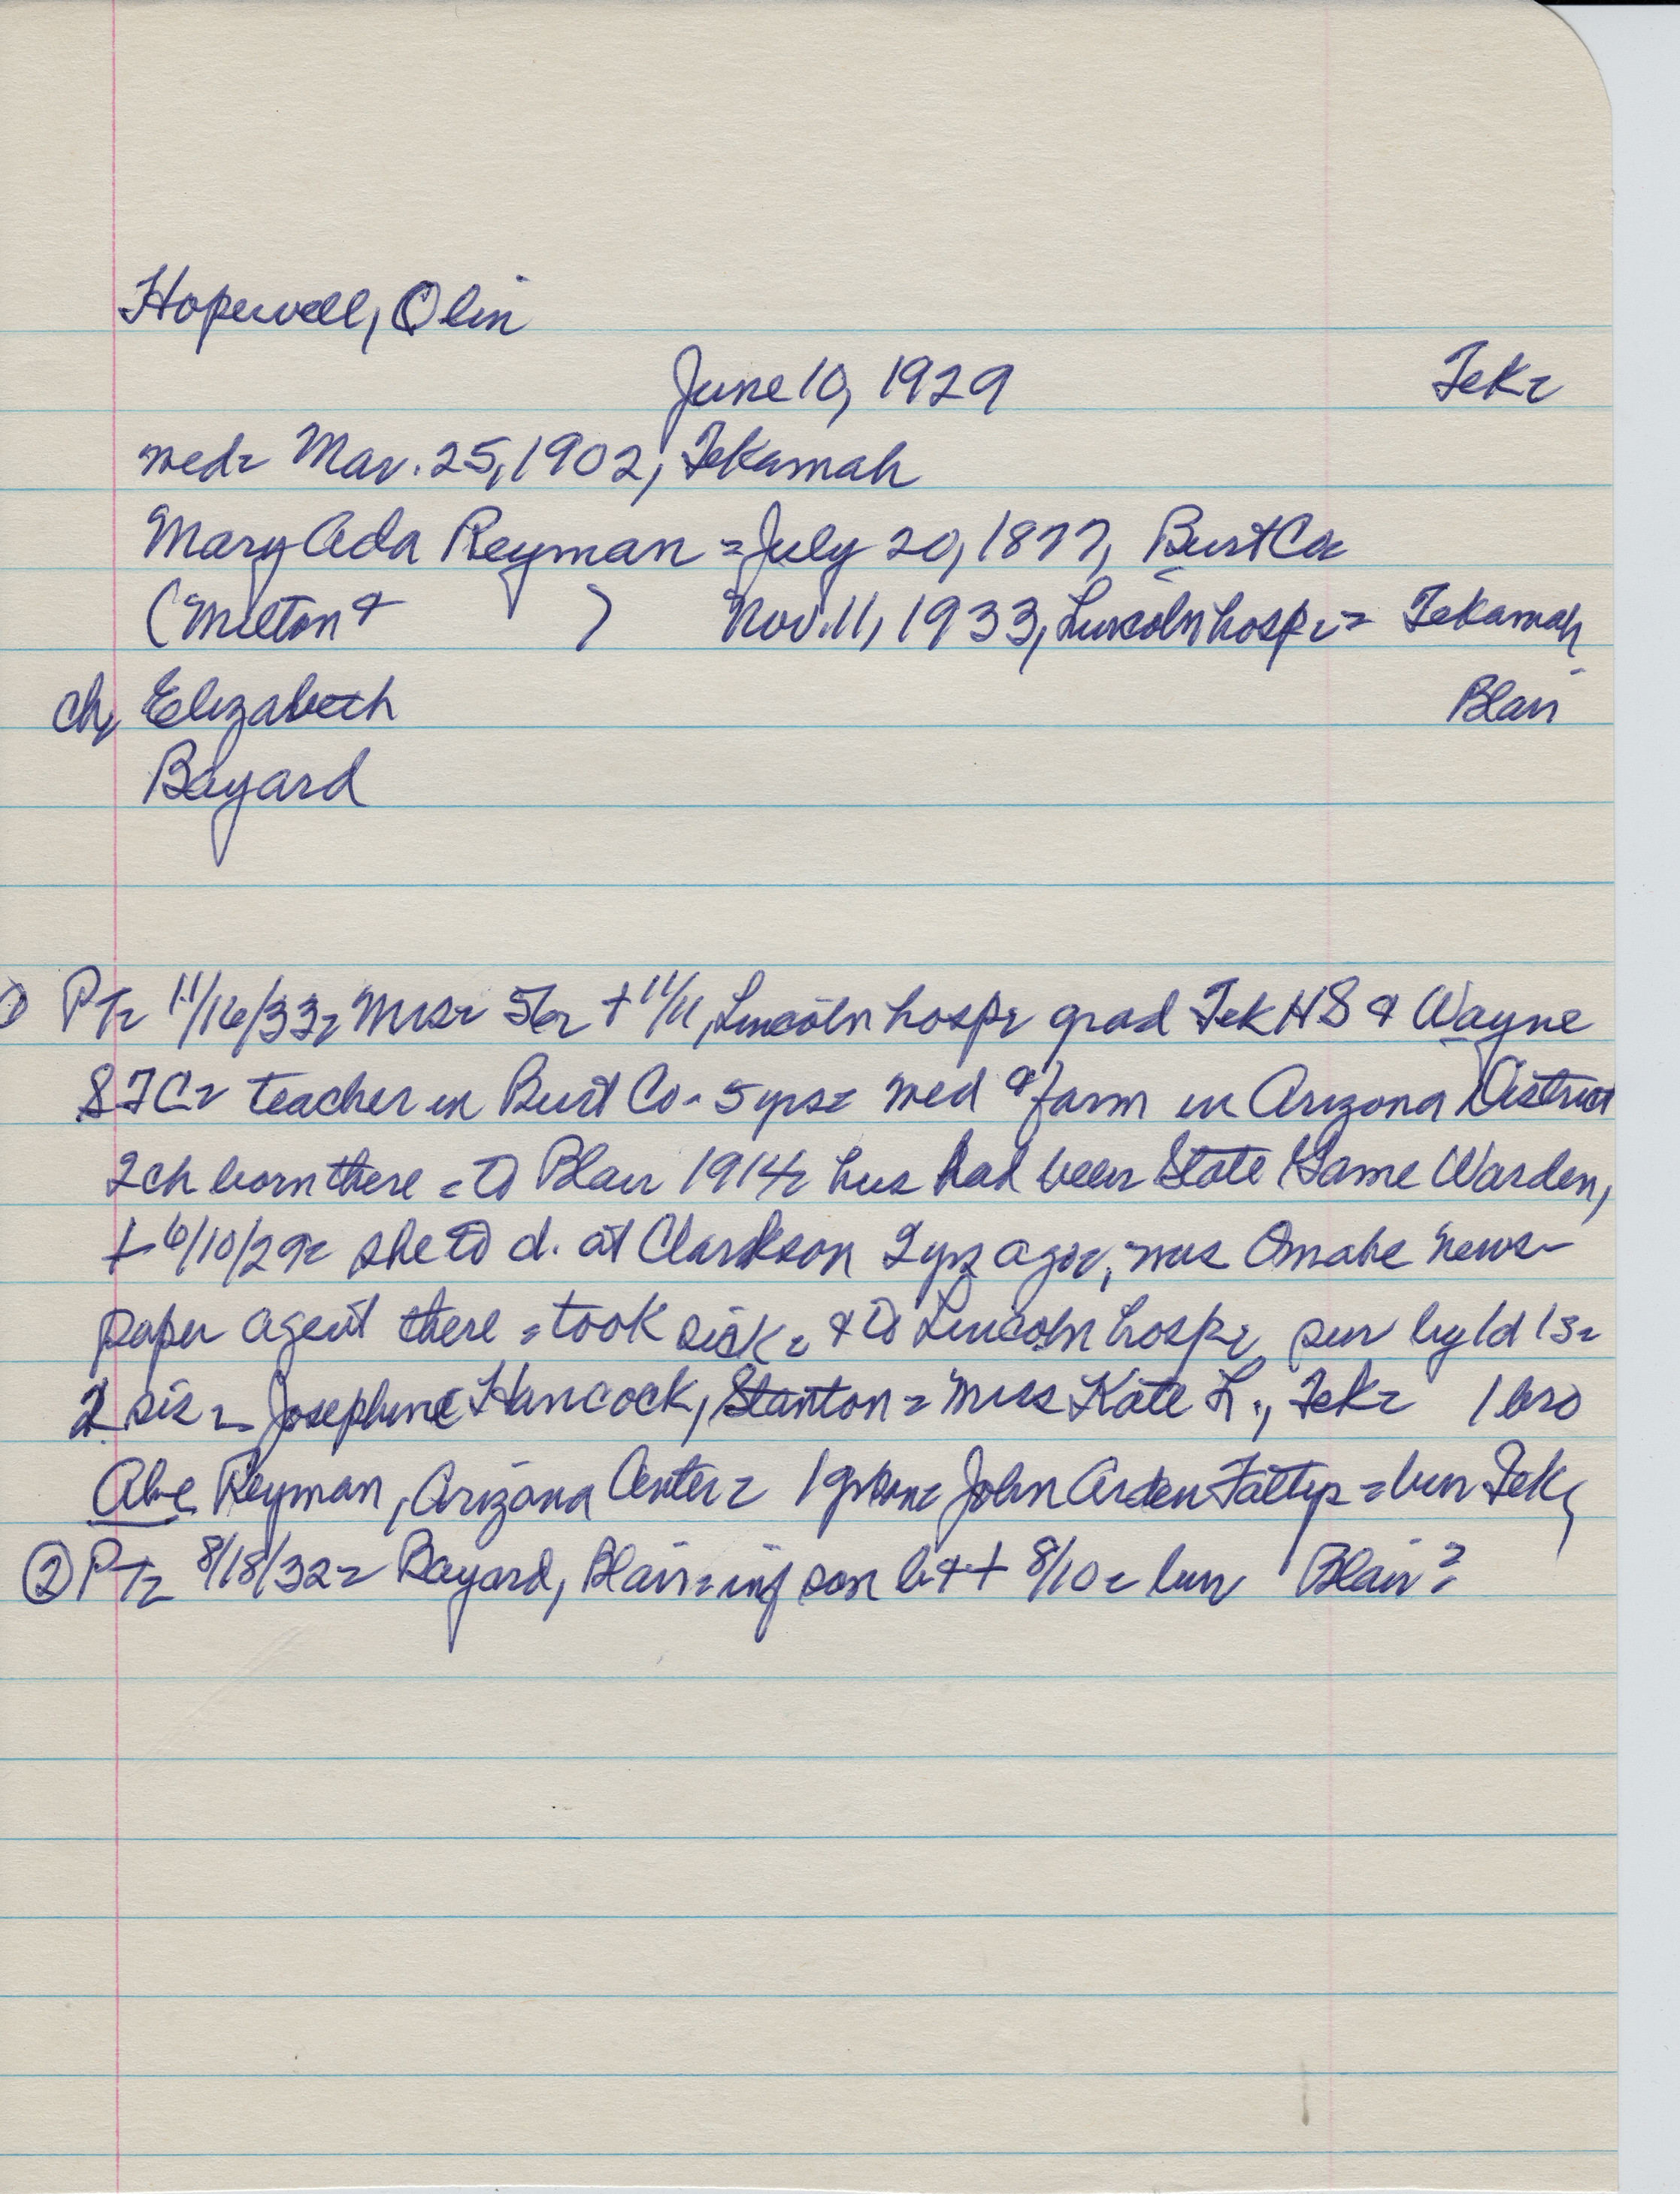 Hopewell, Olin
June 10, 1929 Tek=
wed= Mar. 25, 1902, Tekamah
Mary Ada Reyman = July 20, 1877, Burt Co=
(Milton & ) Nov. 11, 1933, Lincoln hosp= Tekamah
ch, Elizabeth Blair
Bayard
PT= 11/16/33= Mrs= 56= + 11/11, Lincoln hosp= grad Tek HS & Wayne
STC= teacher in Burt Co- 5 yrs= wed & farm in Arizona District
2 ch born there = to Blair 1914= hus had been State Game Warden,
+ 6/10/29= she to d. at Clarkson 2 yrs ago=, was Omaha news-
paper agent there = took sick= & to Lincoln hosp= sur by 1d 1s=
2 sis = Josephine Hancock, Stanton = Miss Kate L., Tek= 1 bro
Abe Reyman, Arizona Center= 1 grson= John Arden = bur Tek,
② PT= 8/18/32= Bayard, Blair= inf son b + + 8/10= bur Blair?